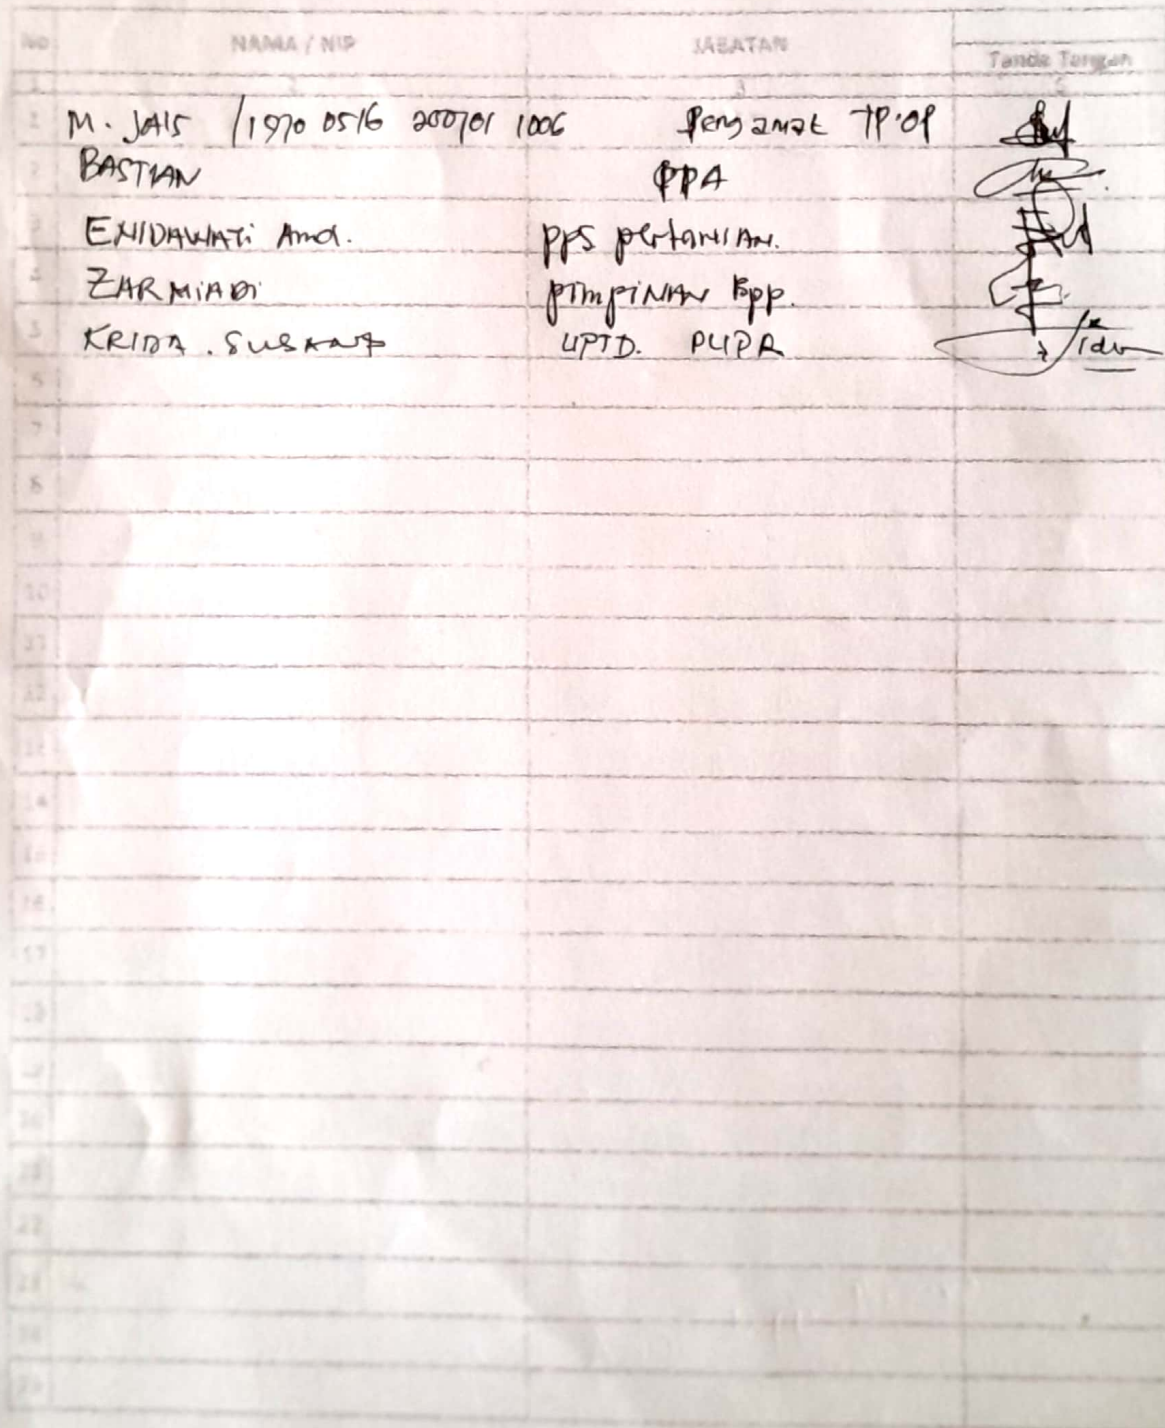 No NAMA / NIP JABATAN
Tanda Tangan
1 2 3 4
1 M. JAIS / 1970 0516 200701 1006 Pengamat TP.OP
2 BASTIAN PPA
3 ENIDAWATi Amd. pps pertaniAN.
4 ZARMiADi pimpiNAN Bpp.
5 KRIDA . SUSANTO UPTD. PUPR
6
7
8
9
10
11
12
13
14
15
16
17
18
19
20
21
22
23
24
25